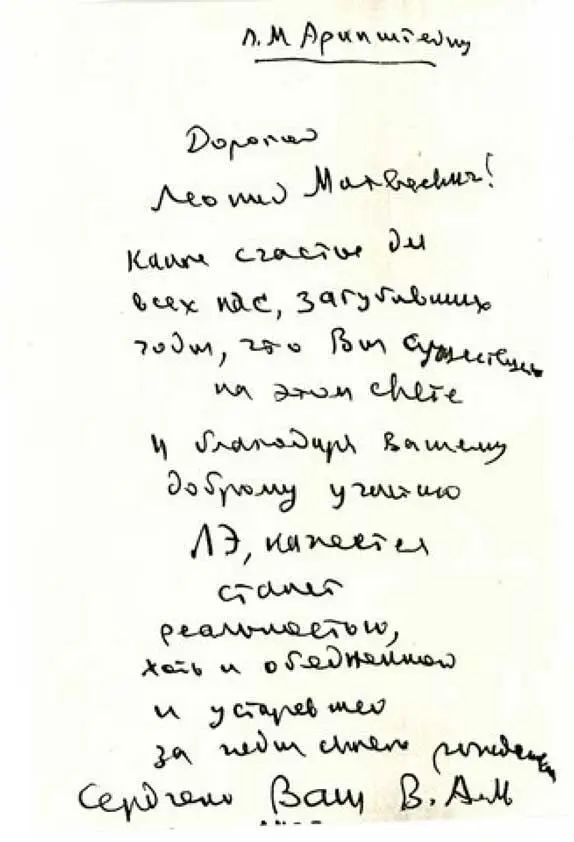 Л.М Аринштейну
Дорогой
Леонид Матвеевич!
Какое счастье для
всех нас, загубивших
годы, что Вы существуете
на этом свете
и благодаря вашему
доброму участию
ЛЭ, кажется
станет
реальностью,
хоть и обедненной
и устаревшей
за годы своего рождения
Сердечно Ваш В. А-М